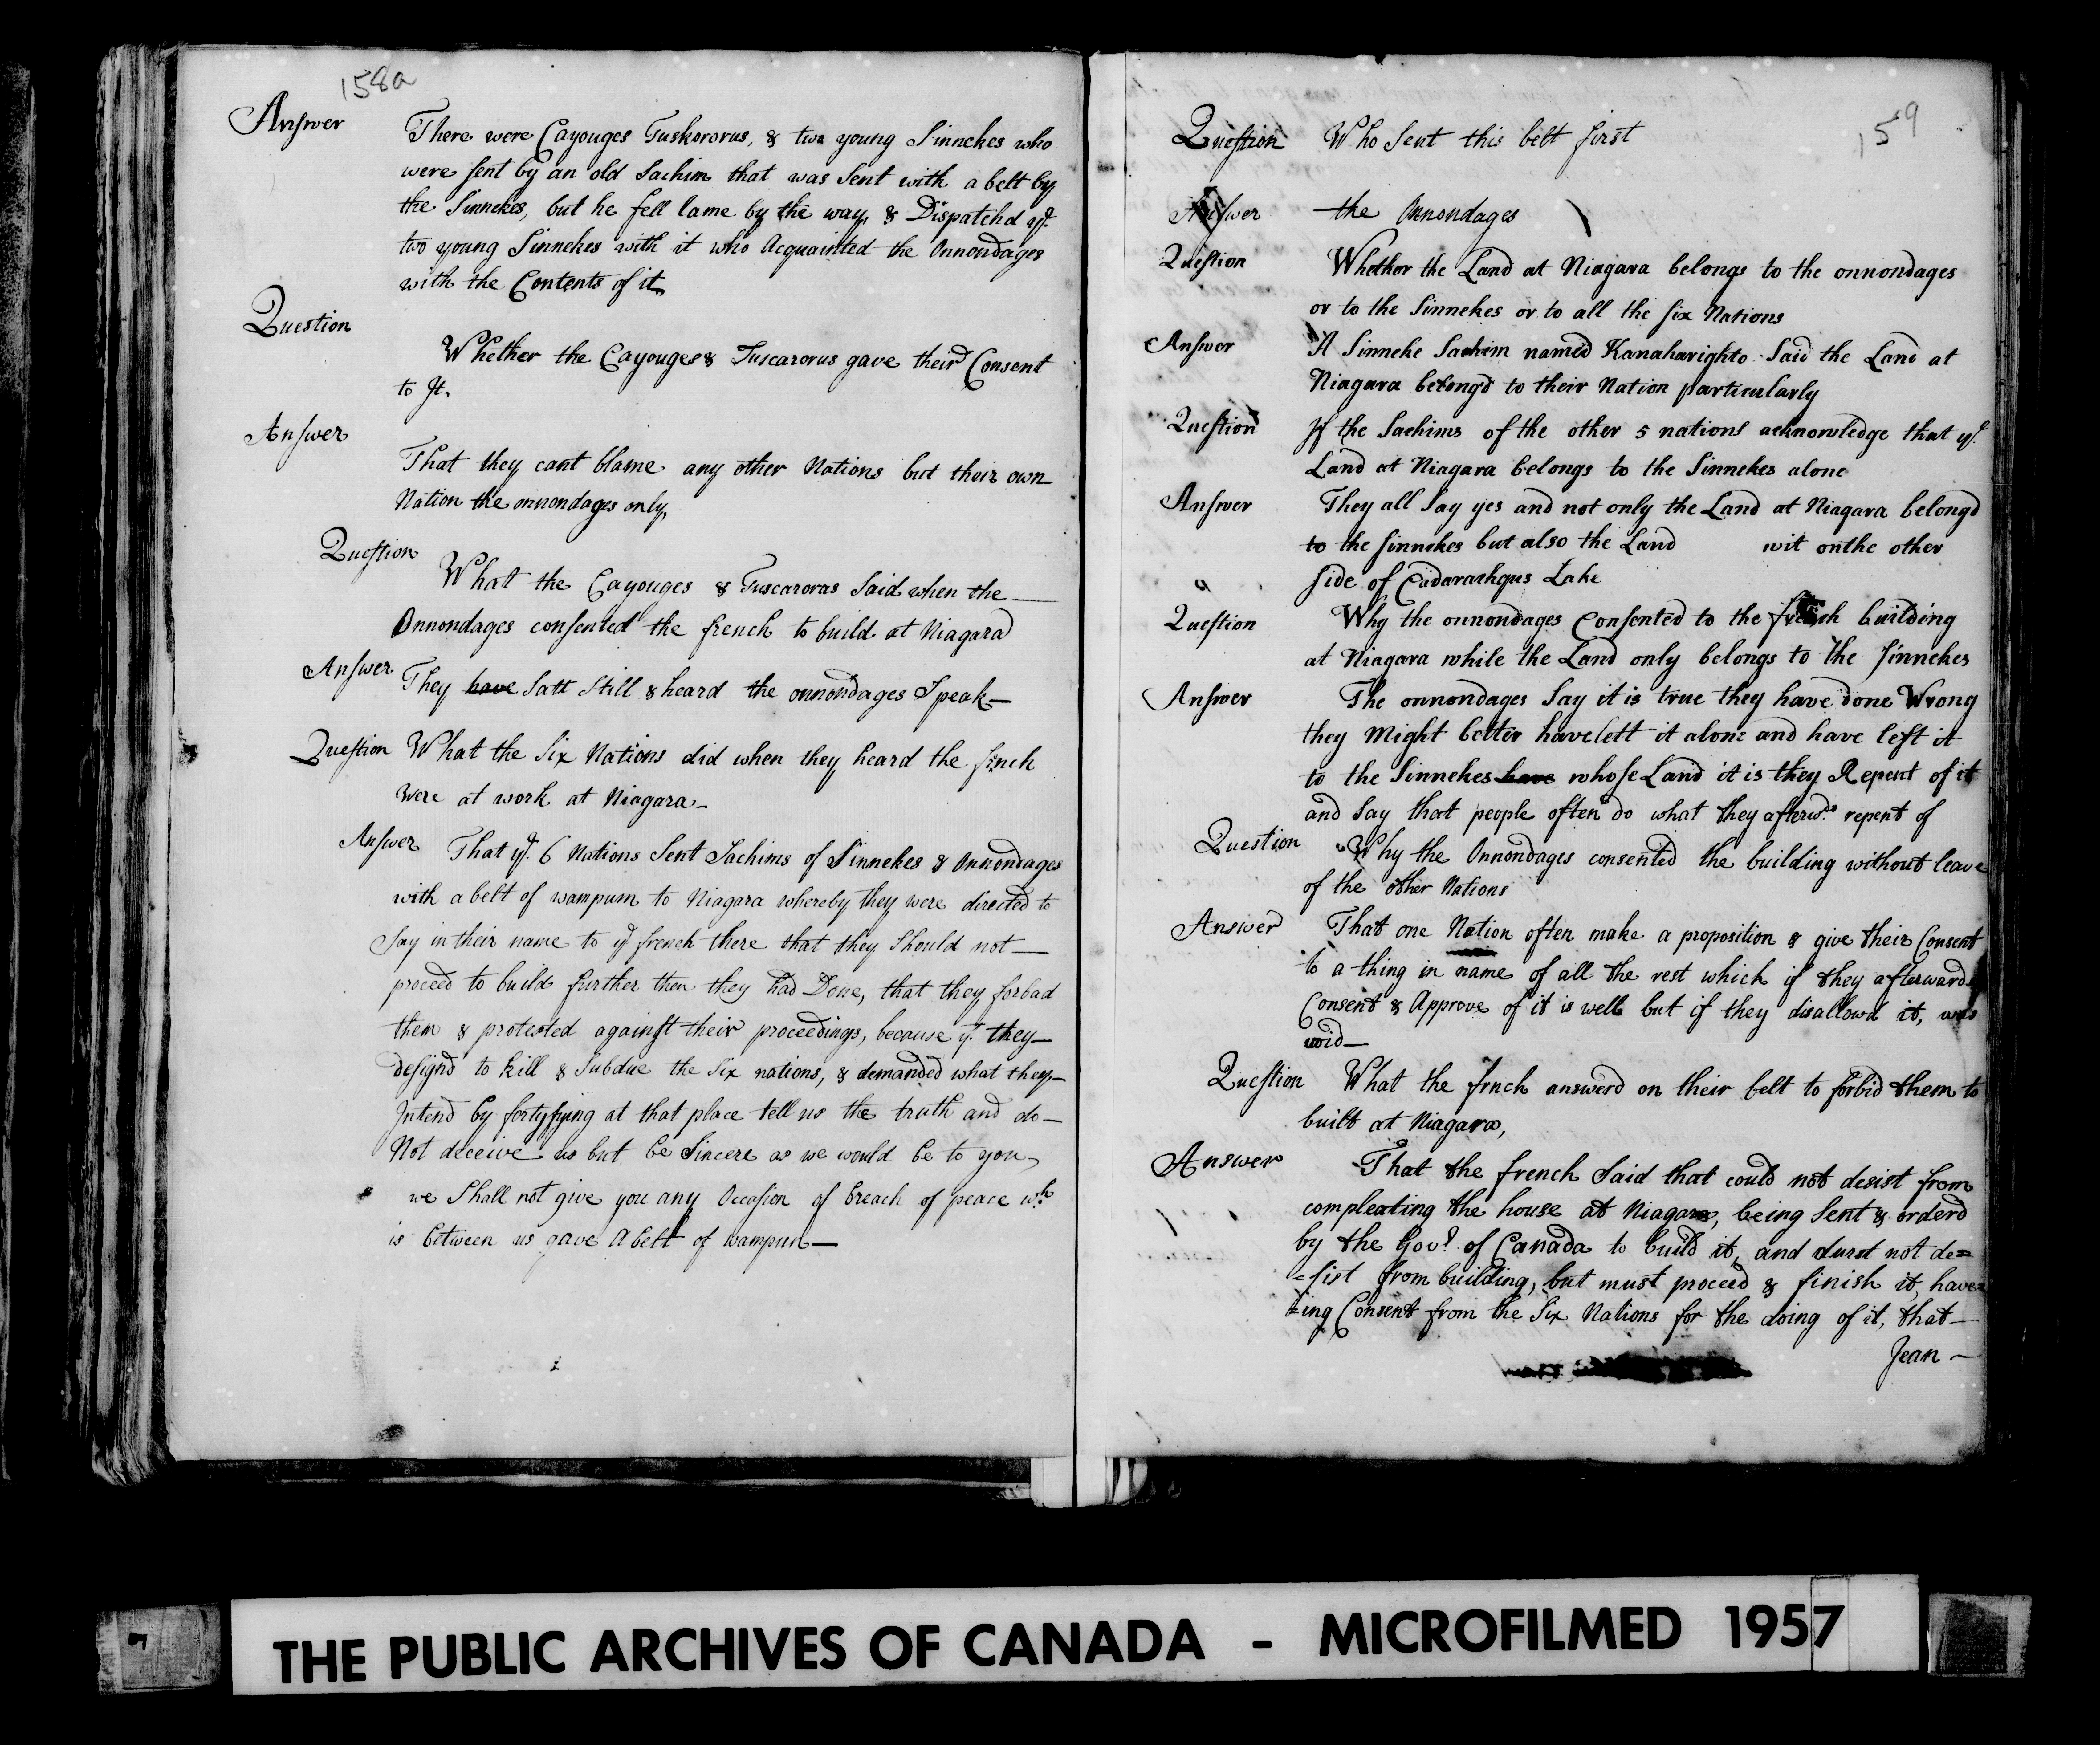 158a
Answer There were Cayouges Tuskororus, & two young Sinnekes who
were sent by an old Sachim that was Sent with a belt by
the Sinnekes, but he fell lame by the way, & Dispatchd ye.
two young Sinnekes with it who Acquainted the Onnondages
with the Contents of it,
Question Whether the Cayouges & Tuscarorus gave their Consent
to It.
Answer That they cant blame any other Nations but their own
Nation the onnondages only,
Question What the Cayouges & Tuscaroras Said when the —
Onnondages consented the french to build at Niagara
Answer They have Satt Still & heard the onnondages Speak—
Question What the Six Nations did when they heard the frnch
Were at work at Niagara—
Answer That ye. 6 Nations Sent Sachims of Sinnekes & Onnondages
with a belt of wampum to Niagara whereby they were directed to
Say in their name to ye french there that they Should not —
proceed to build further then they had Done, that they forbad
them & protested against their proceedings, because yt. they—
designd to kill & Subdue the Six nations, & demanded what they—
Intend by fortyfying at that place tell us the truth and do—
Not deceive us but be Sincere as we would be to you,
we Shall not give you any Occasion of breach of peace wh.
is between us gave A belt of wampum—
159
Question Who Sent this belt first
Answer the Onnondages
Question Whether the Land at Niagara belongs to the onnondages
or to the Sinnekes or to all the six Nations
Answer A Sinneke Sachim named Kanaharighto Said the Land at
Niagara belongd to their Nation particularly
Question If the Sachims of the other 5 nations acknowledge that ye.
Land at Niagara belongs to the Sinnekes alone
Answer They all Say yes and not only the Land at Niagara belongd
to the sinnekes but also the Land wit on the other
side of Cadarachqus Lake
Question Why the onnondages Consented to the french building
at Niagara while the Land only belongs to the sinnekes
Answer The onnondages Say it is true they have done Wrong
they Might better have lett it alone and have left it
to the Sinnekes have whose Land it is they Repent of it
and Say that people often do what they afterwds. repent of
Question Why the Onnondages consented the building without leave
of the other Nations
Answer That one Nation often make a proposition & give their Consent
to a thing in name of all the rest which if they afterwards
Consent & Approve of it is well but if they disallowd it, was
void—
Question What the frnch answerd on their belt to forbid them to
built at Niagara,
Answer That the french Said that could not desist from
compleating the house at Niagara, being Sent & orderd
by the Govr. of Canada to build it, and durst not de=
=sist from building, but must proceed & finish it, have=
=ing Consent from the Six Nations for the doing of it, that—
Jean—
THE PUBLIC ARCHIVES OF CANADA - MICROFILMED 1957